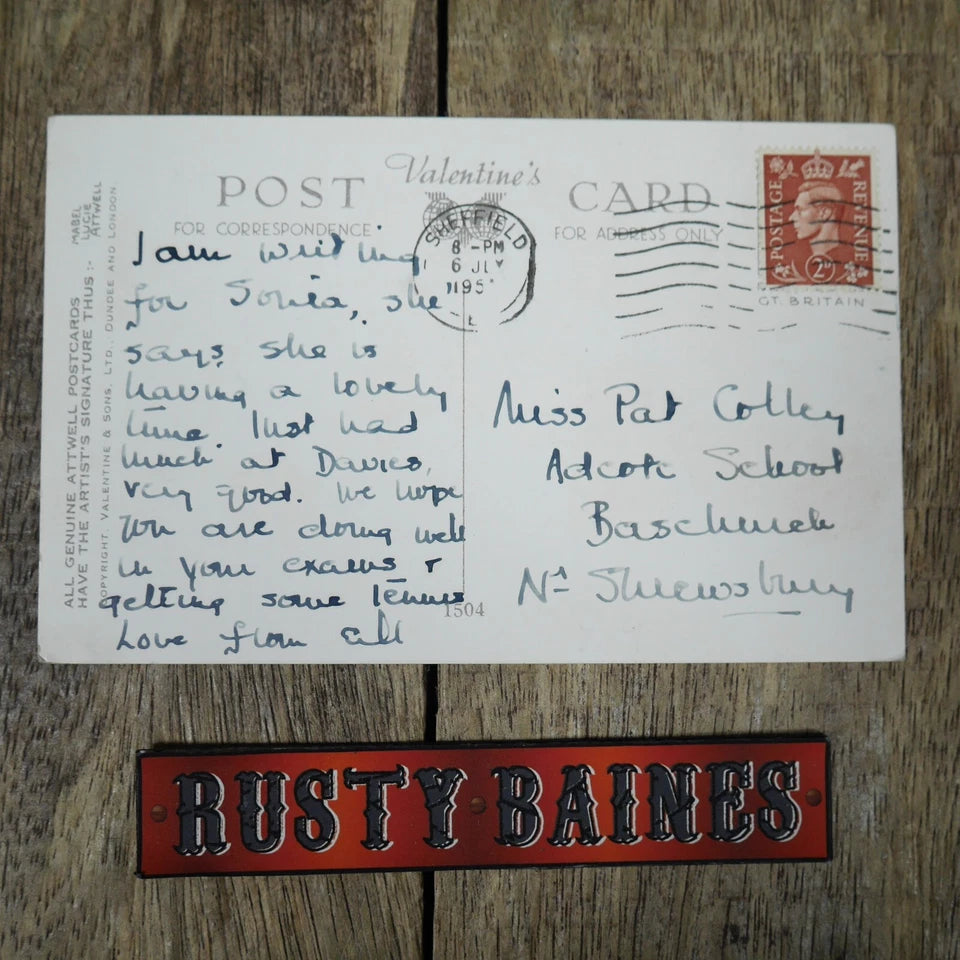 POST Valentine's CARD
FOR CORRESPONDENCE
FOR ADDRESS ONLY
POSTAGE REVENUE
2D
GT. BRITAIN
SHEFFIELD
8 - PM
6 JLY
195
ALL GENUINE ATTWELL POSTCARDS
HAVE THE ARTIST'S SIGNATURE THUS :-
MABEL
LUCIE
ATTWELL
COPYRIGHT. VALENTINE & SONS, LTD., DUNDEE AND LONDON.
I am writing
for Sonia, she
says she is
having a lovely
time. Just had
lunch at Davies,
very good. We hope
you are doing well
in your exams &
getting some tennis
Love from all
Miss Pat Colley
Adcote School
Baschurch
Nr Shrewsbury
1504
RUSTY BAINES